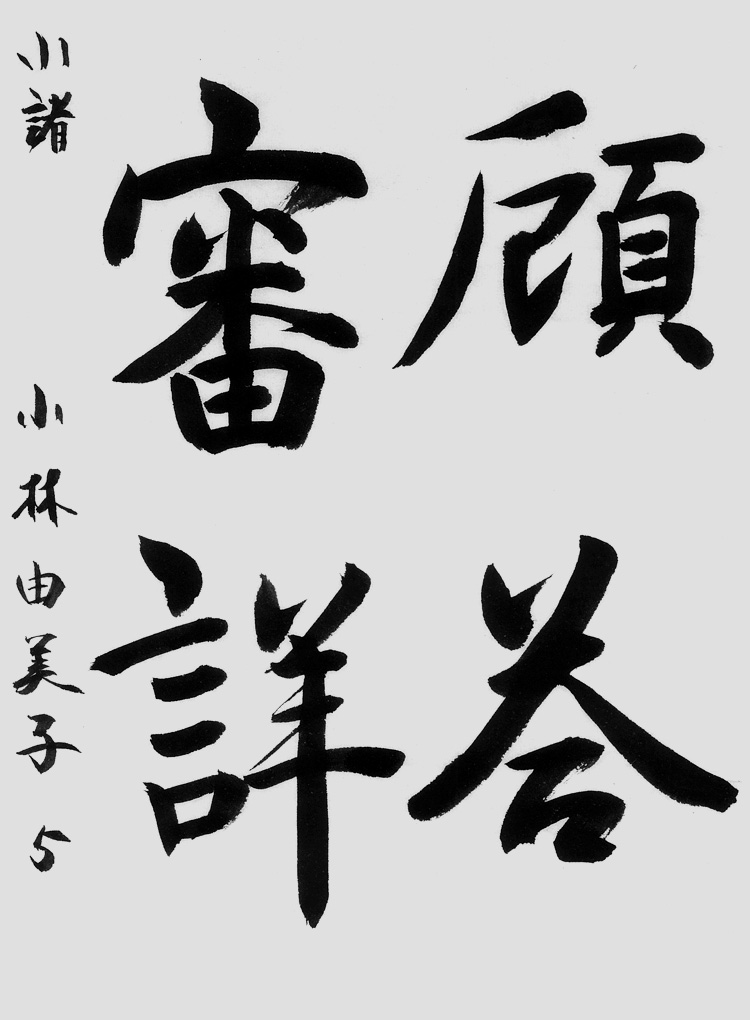 顧答
審詳
小諸 小 小林由美子 5